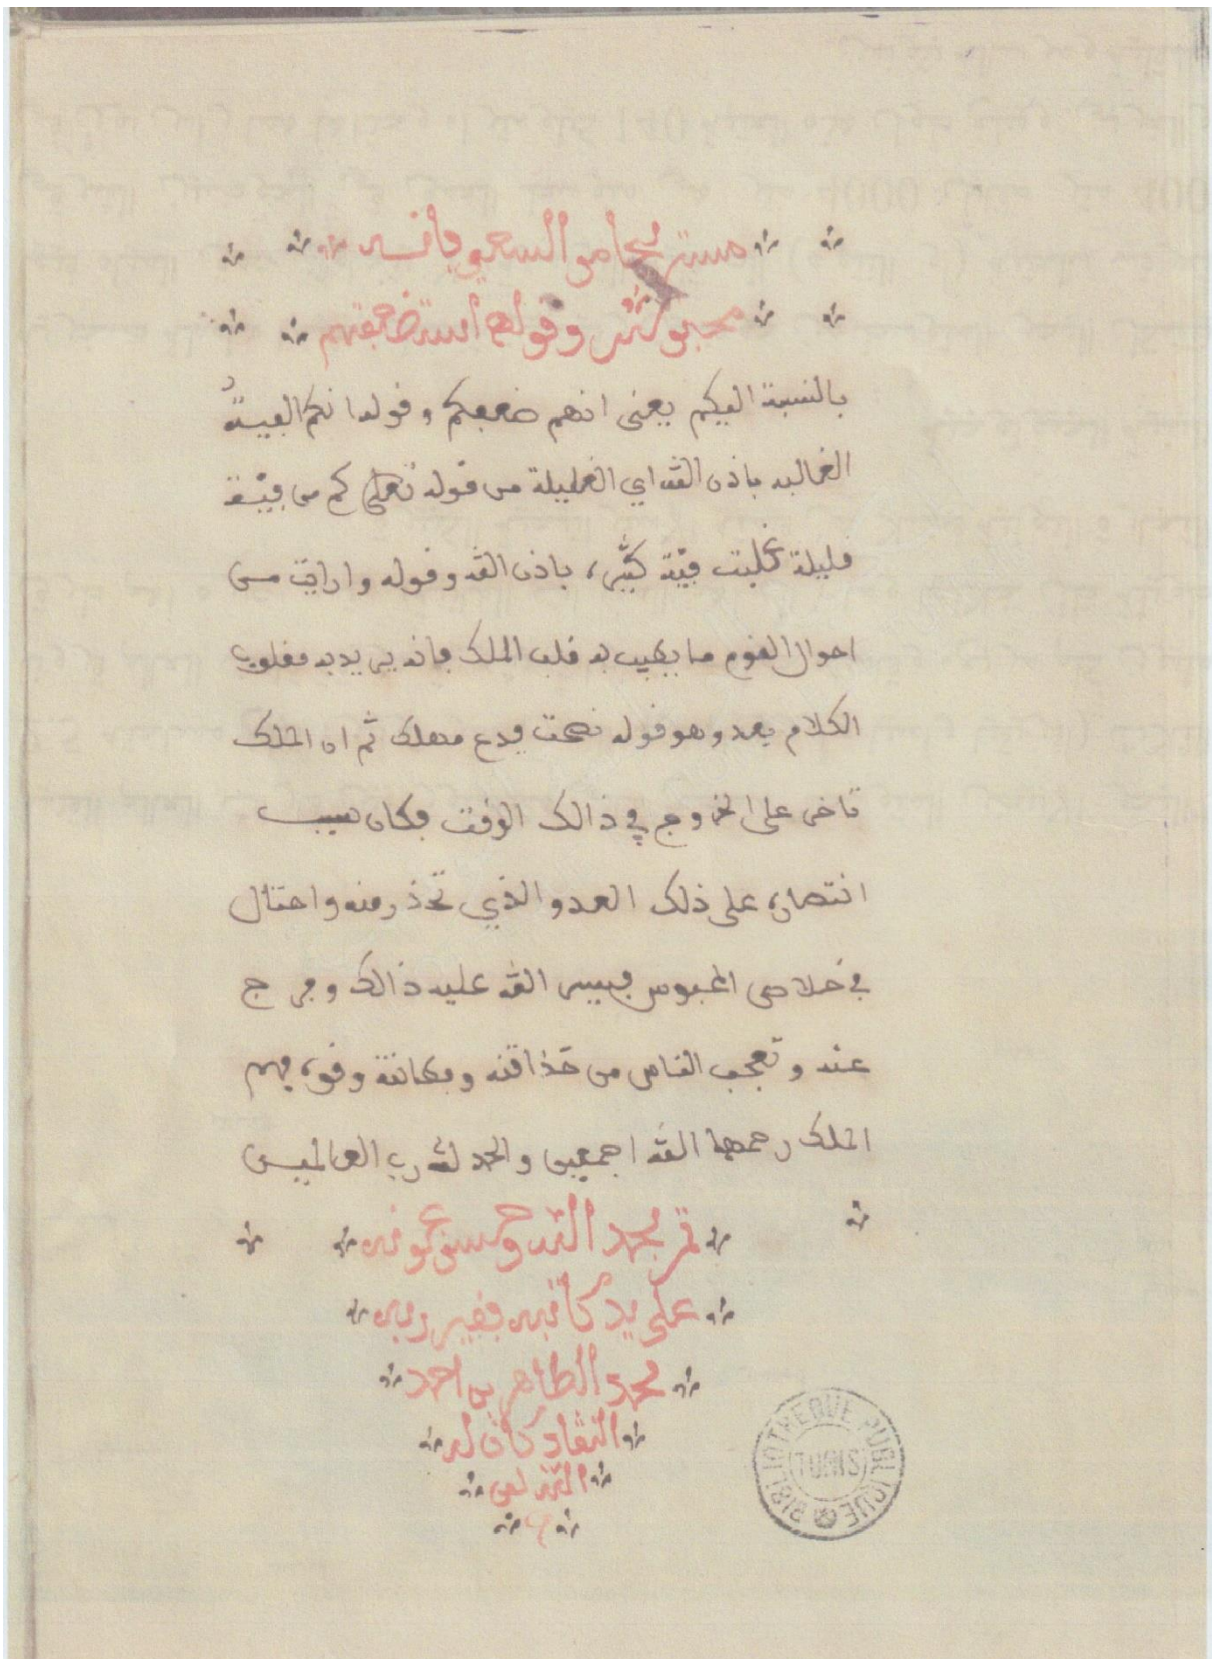 محبوس وقوله استضعفتهم
بالنسبة اليكم يعنى انهم ضعفكم وقوله انكم الفيئة
الغالبه باذن الله اي القليلة من قوله تعلى كم من فيئة
قليلة غلبت فيئة كثيرة باذن الله وقوله وارايت من
احوال القوم ما يطيب به قلب الملك فانه يريد به مقلوب
الكلام بعد وهو قوله نصحت فدع مهلك ثم ان الملك
تاخر على الخروج في ذالك الوقت فكان سبب
انتصاره على ذلك العدو الذي تحذر منه واحتال
في خلاص المحبوس فيسر الله عليه ذالك وفرج
عنه وتعجب الناس من حذاقته ومكانته وقوة فهم
الملك رحمهما الله اجمعين والحمد لله رب العالمين
تم بحمد الله وحسن عونه
على يد كاتبه فقير ربه
محمد الطاهر بن احمد
النقاد كان له
الله
BIBLIOTHEQUE PUBLIQUE
TUNIS